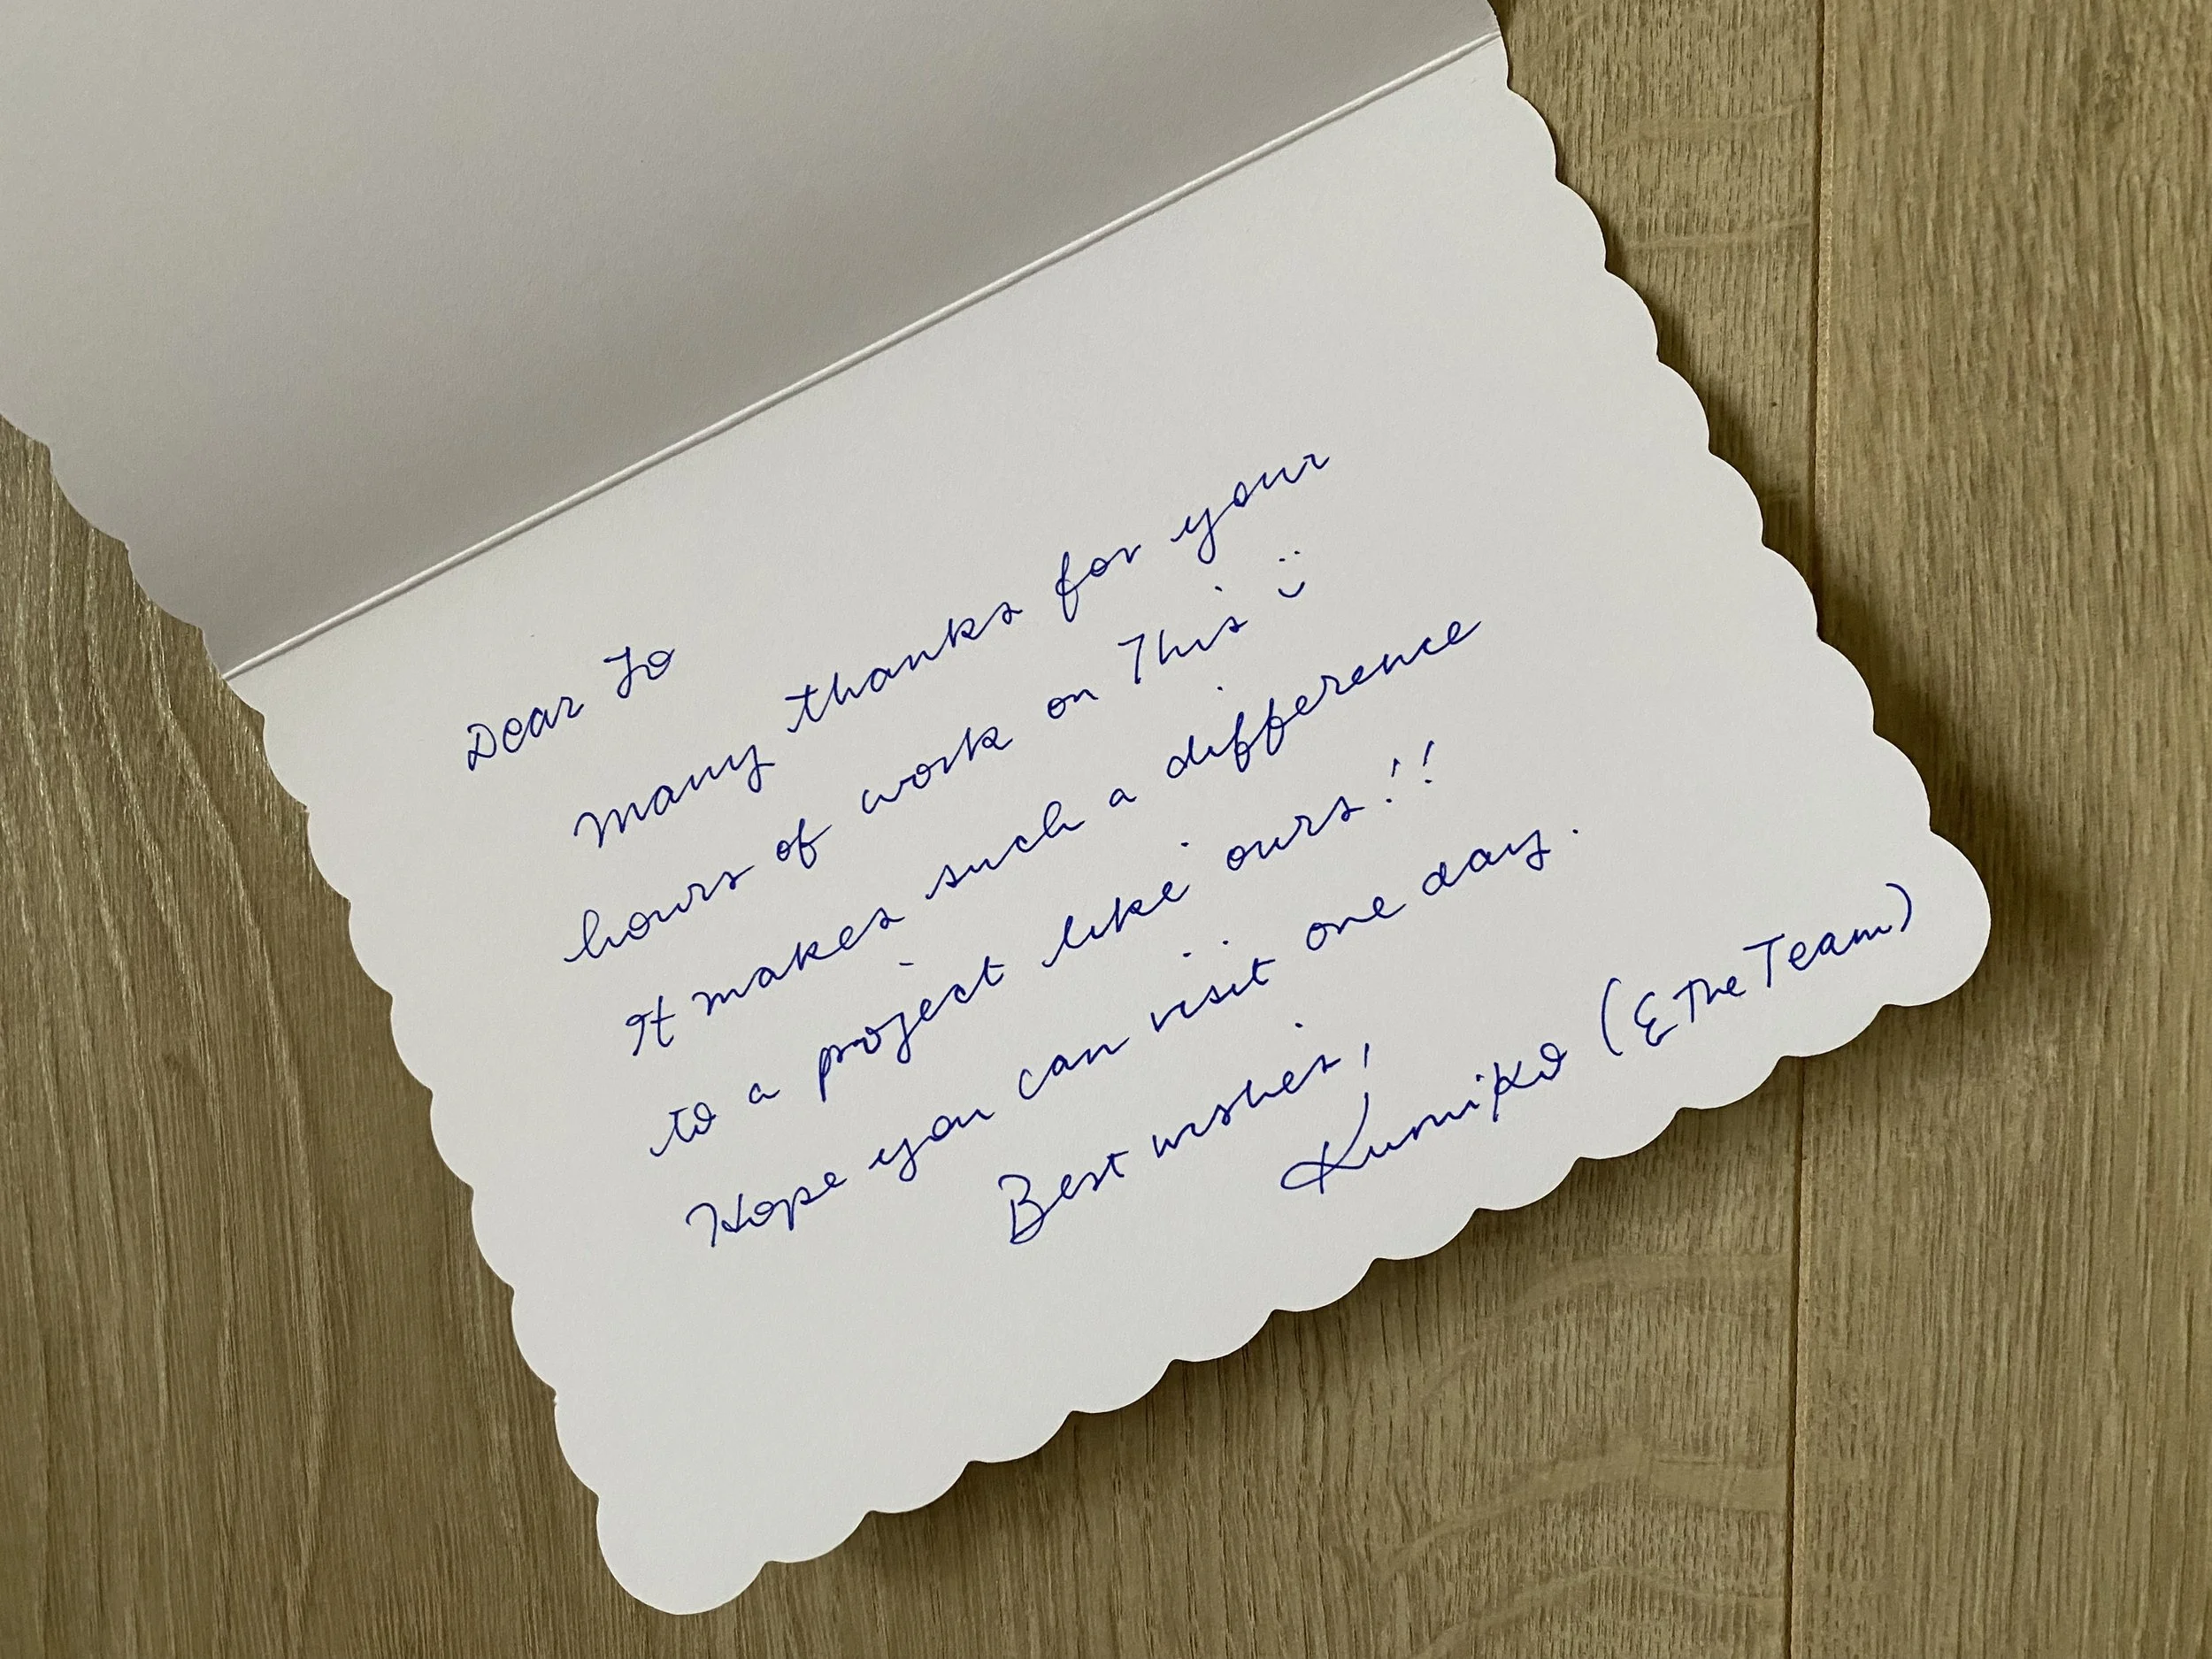 Dear Jo
Many thanks for your
hours of work on This :)
It makes such a difference
to a project like ours!!
Hope you can visit one day.
Best wishes,
Kumiko (& The Team)